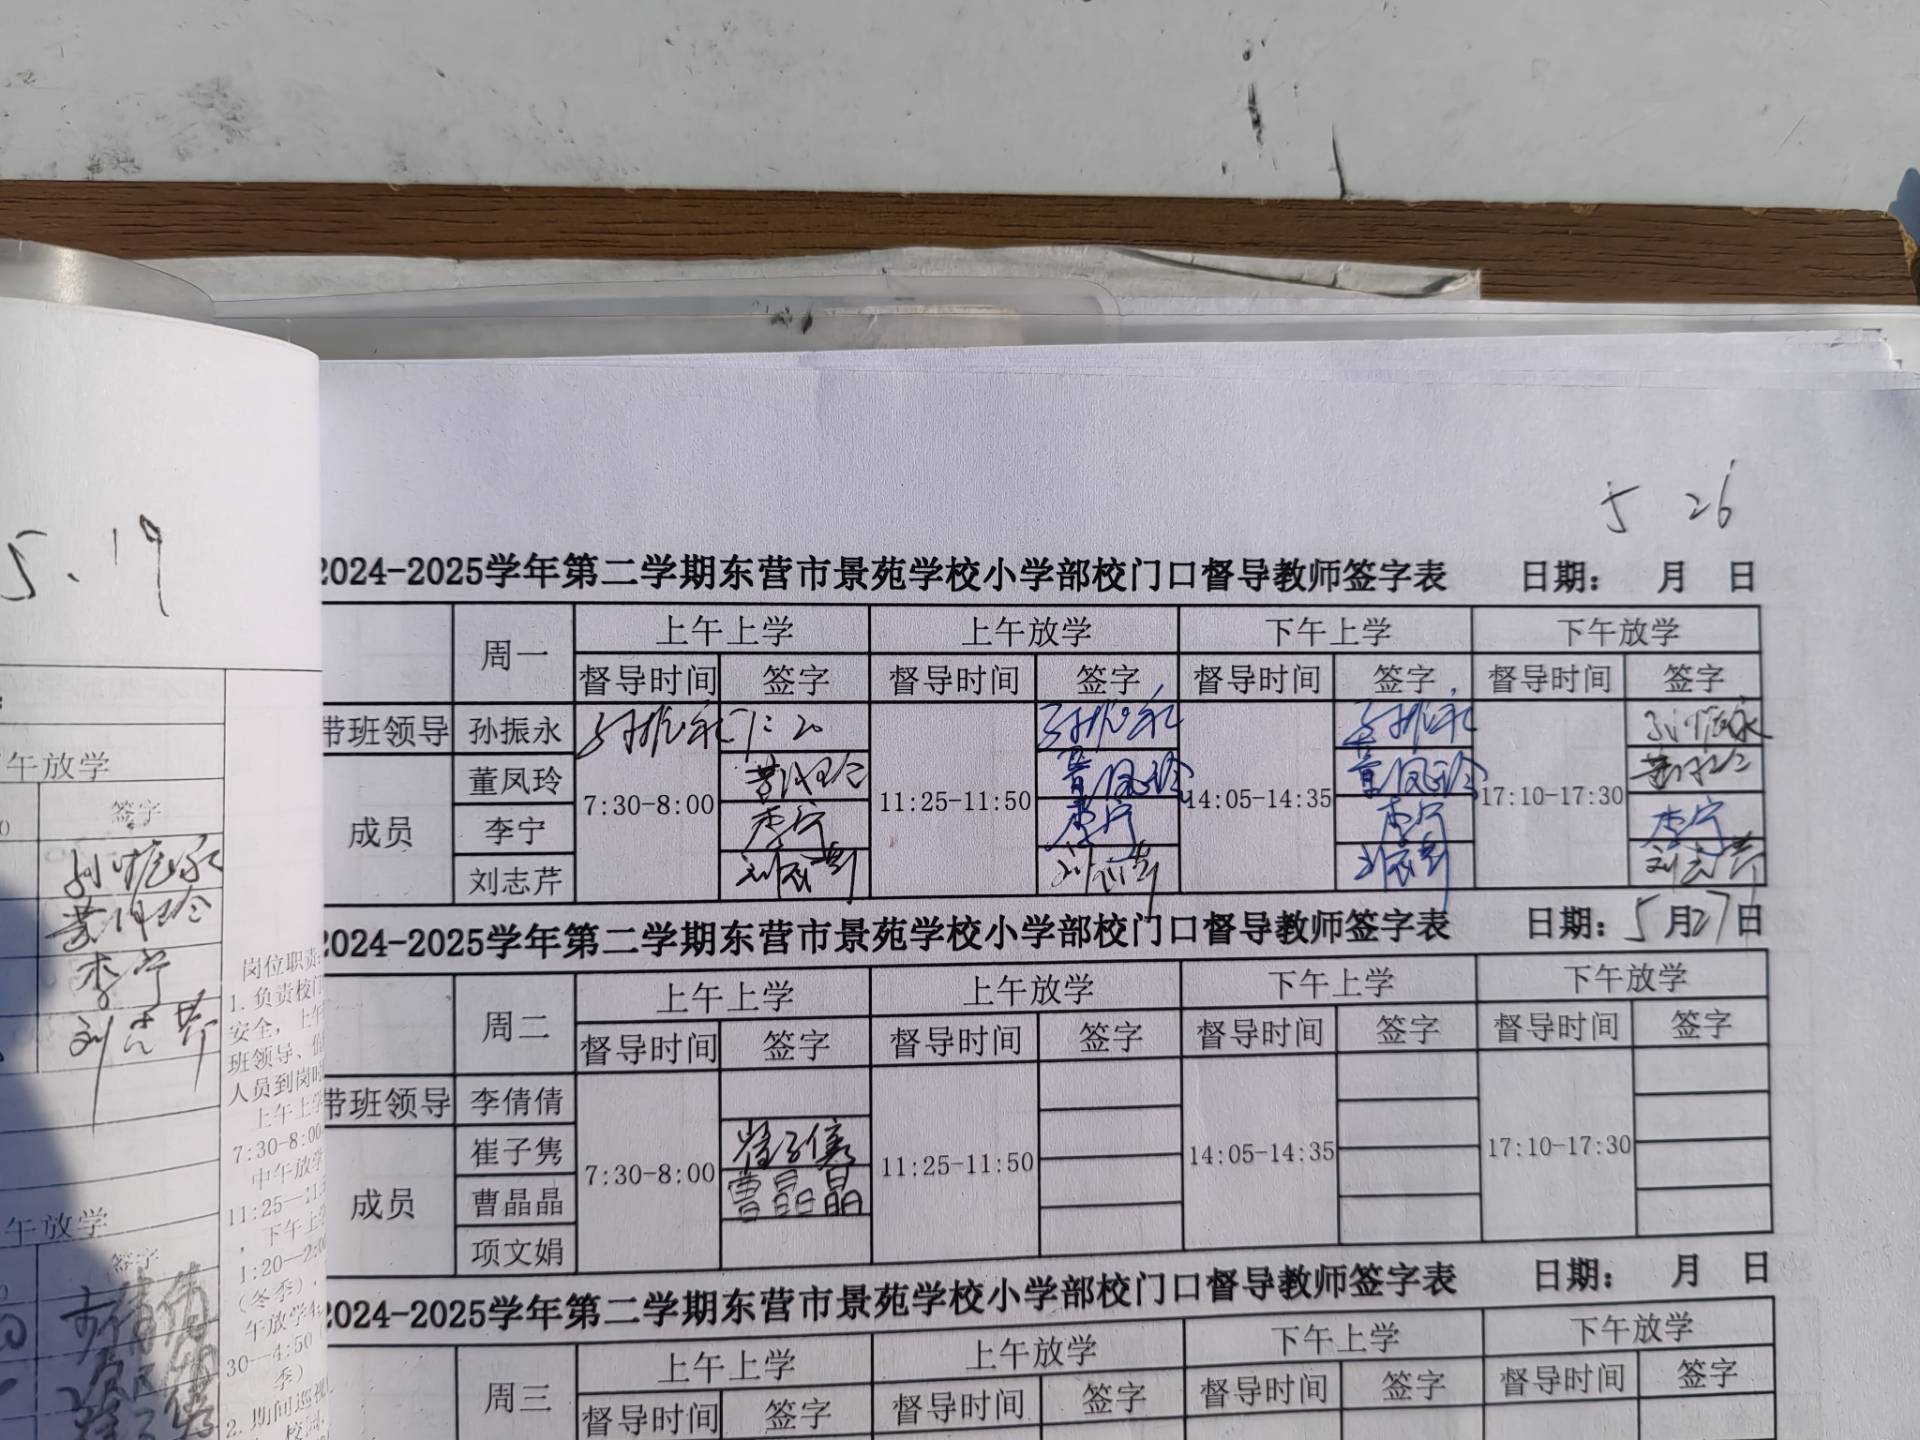 5.19
午放学
签字
孙振永
董凤玲
李宁
刘志芹
岗位职责
1.负责校门
安全，上午
班领导、值
人员到岗时
上午上学
7:30-8:00
中午放学
11:25—11:
，下午上学
1:20—2:0
（冬季），
午放学4:
30—4:50
季）
2.期间巡视
校园
午放学
签字
5 26
2024-2025学年第二学期东营市景苑学校小学部校门口督导教师签字表 日期： 月 日
周一 上午上学 上午放学 下午上学 下午放学
督导时间 签字 督导时间 签字 督导时间 签字 督导时间 签字
带班领导 孙振永 孙振永 7:20 孙振永 孙振永 孙振永
董凤玲 董凤玲 董凤玲 董凤玲 董凤玲
成员 7:30-8:00 11:25-11:50 14:05-14:35 17:10-17:30
李宁 李宁 李宁 李宁 李宁
刘志芹 刘志芹 刘志芹 刘志芹 刘志芹
2024-2025学年第二学期东营市景苑学校小学部校门口督导教师签字表 日期：5月27日
周二 上午上学 上午放学 下午上学 下午放学
督导时间 签字 督导时间 签字 督导时间 签字 督导时间 签字
带班领导 李倩倩
崔子隽 崔子隽
成员 7:30-8:00 11:25-11:50 14:05-14:35 17:10-17:30
曹晶晶 曹晶晶
项文娟
2024-2025学年第二学期东营市景苑学校小学部校门口督导教师签字表 日期： 月 日
周三 上午上学 上午放学 下午上学 下午放学
督导时间 签字 督导时间 签字 督导时间 签字 督导时间 签字